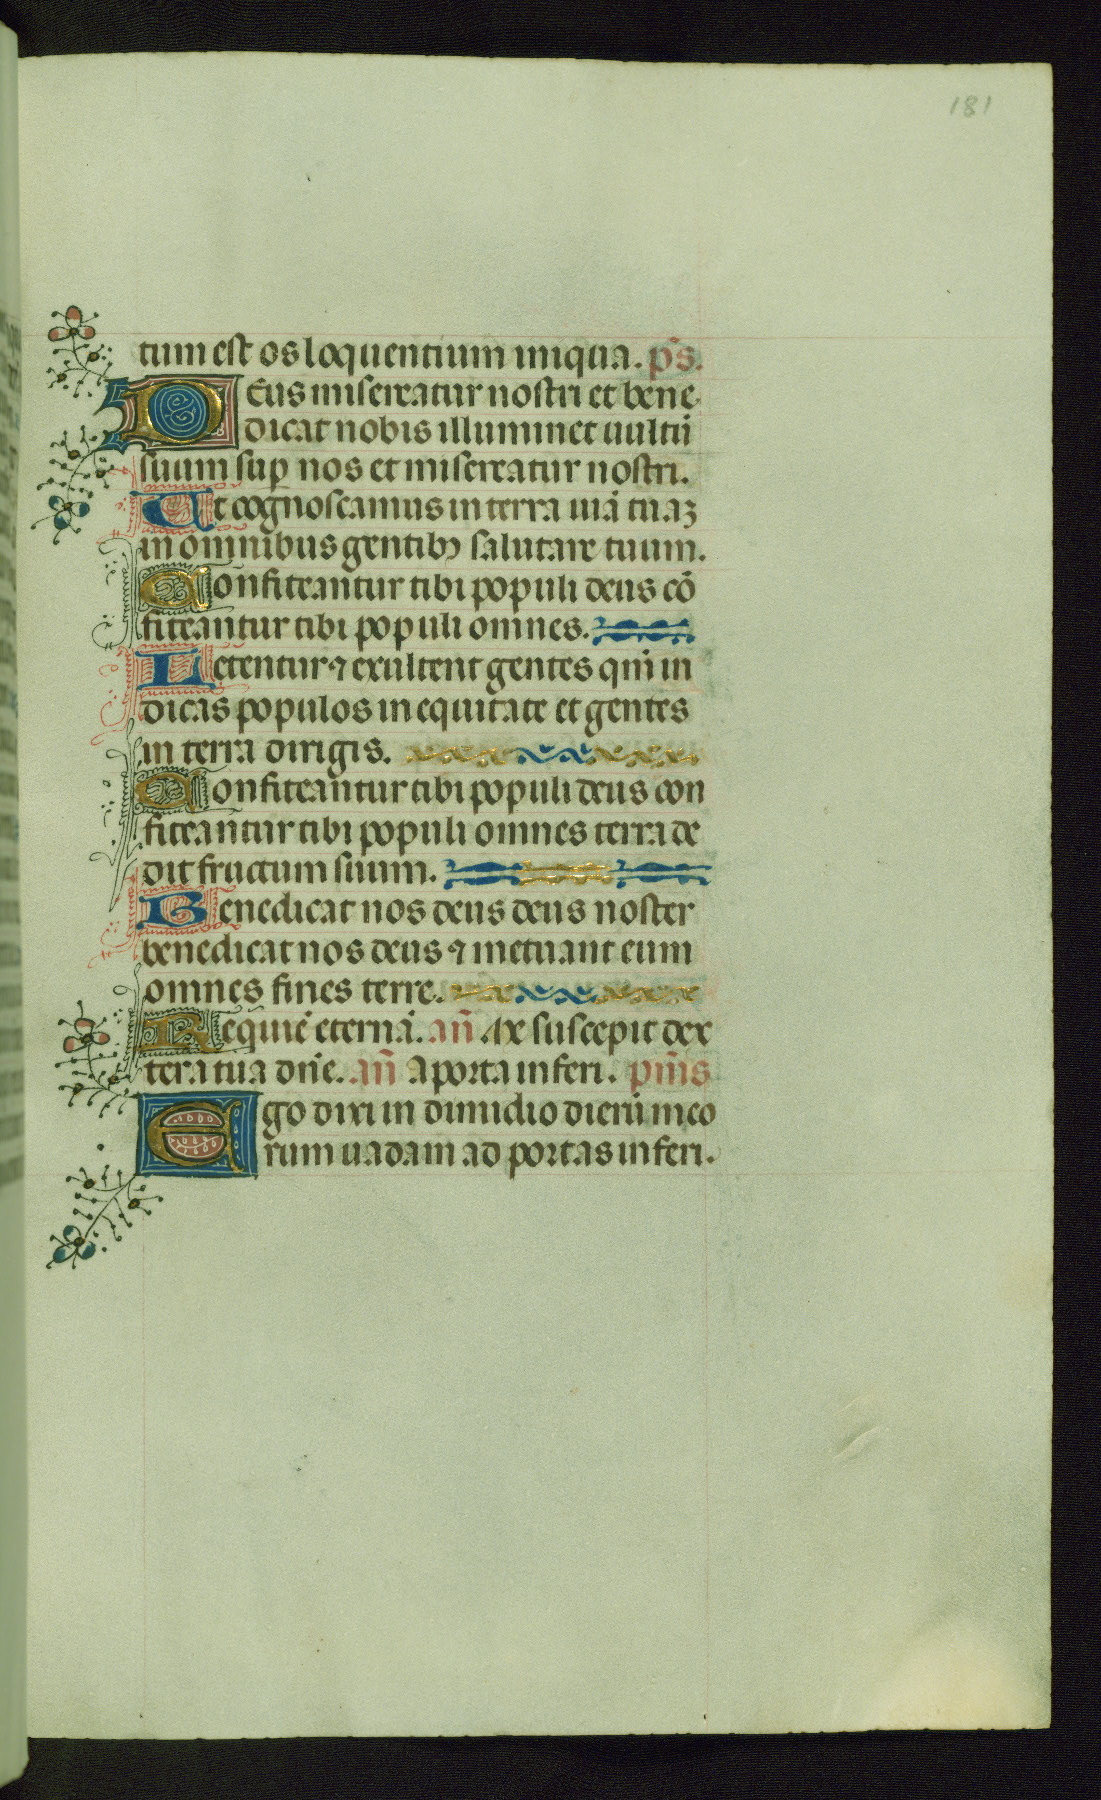 181
tum est os loquentium iniqua. p̄s.
Deus misereatur nostri et bene
dicat nobis illuminet uultū
suum sup̱ nos et misereatur nostri.
Ut cognoscamus in terra uiā tuaꝫ
in omnibus gentibꝰ salutare tuum.
Confiteantur tibi populi deus cō
fiteantur tibi populi omnes.
Letentur ⁊ exultent gentes qm̄ iu
dicas populos in equitate et gentes
in terra dirigis.
Confiteantur tibi populi deus con
fiteantur tibi populi omnes terra de
dit fructum suum.
Benedicat nos deus deus noster
benedicat nos deus ⁊ metuant eum
omnes fines terre.
Requiē eternā. an̄ Me suscepit dex
tera tua dn̄e. an̄ A porta inferi. pm̄s
Ego dixi in dimidio dierū meo
rum uadam ad portas inferi.